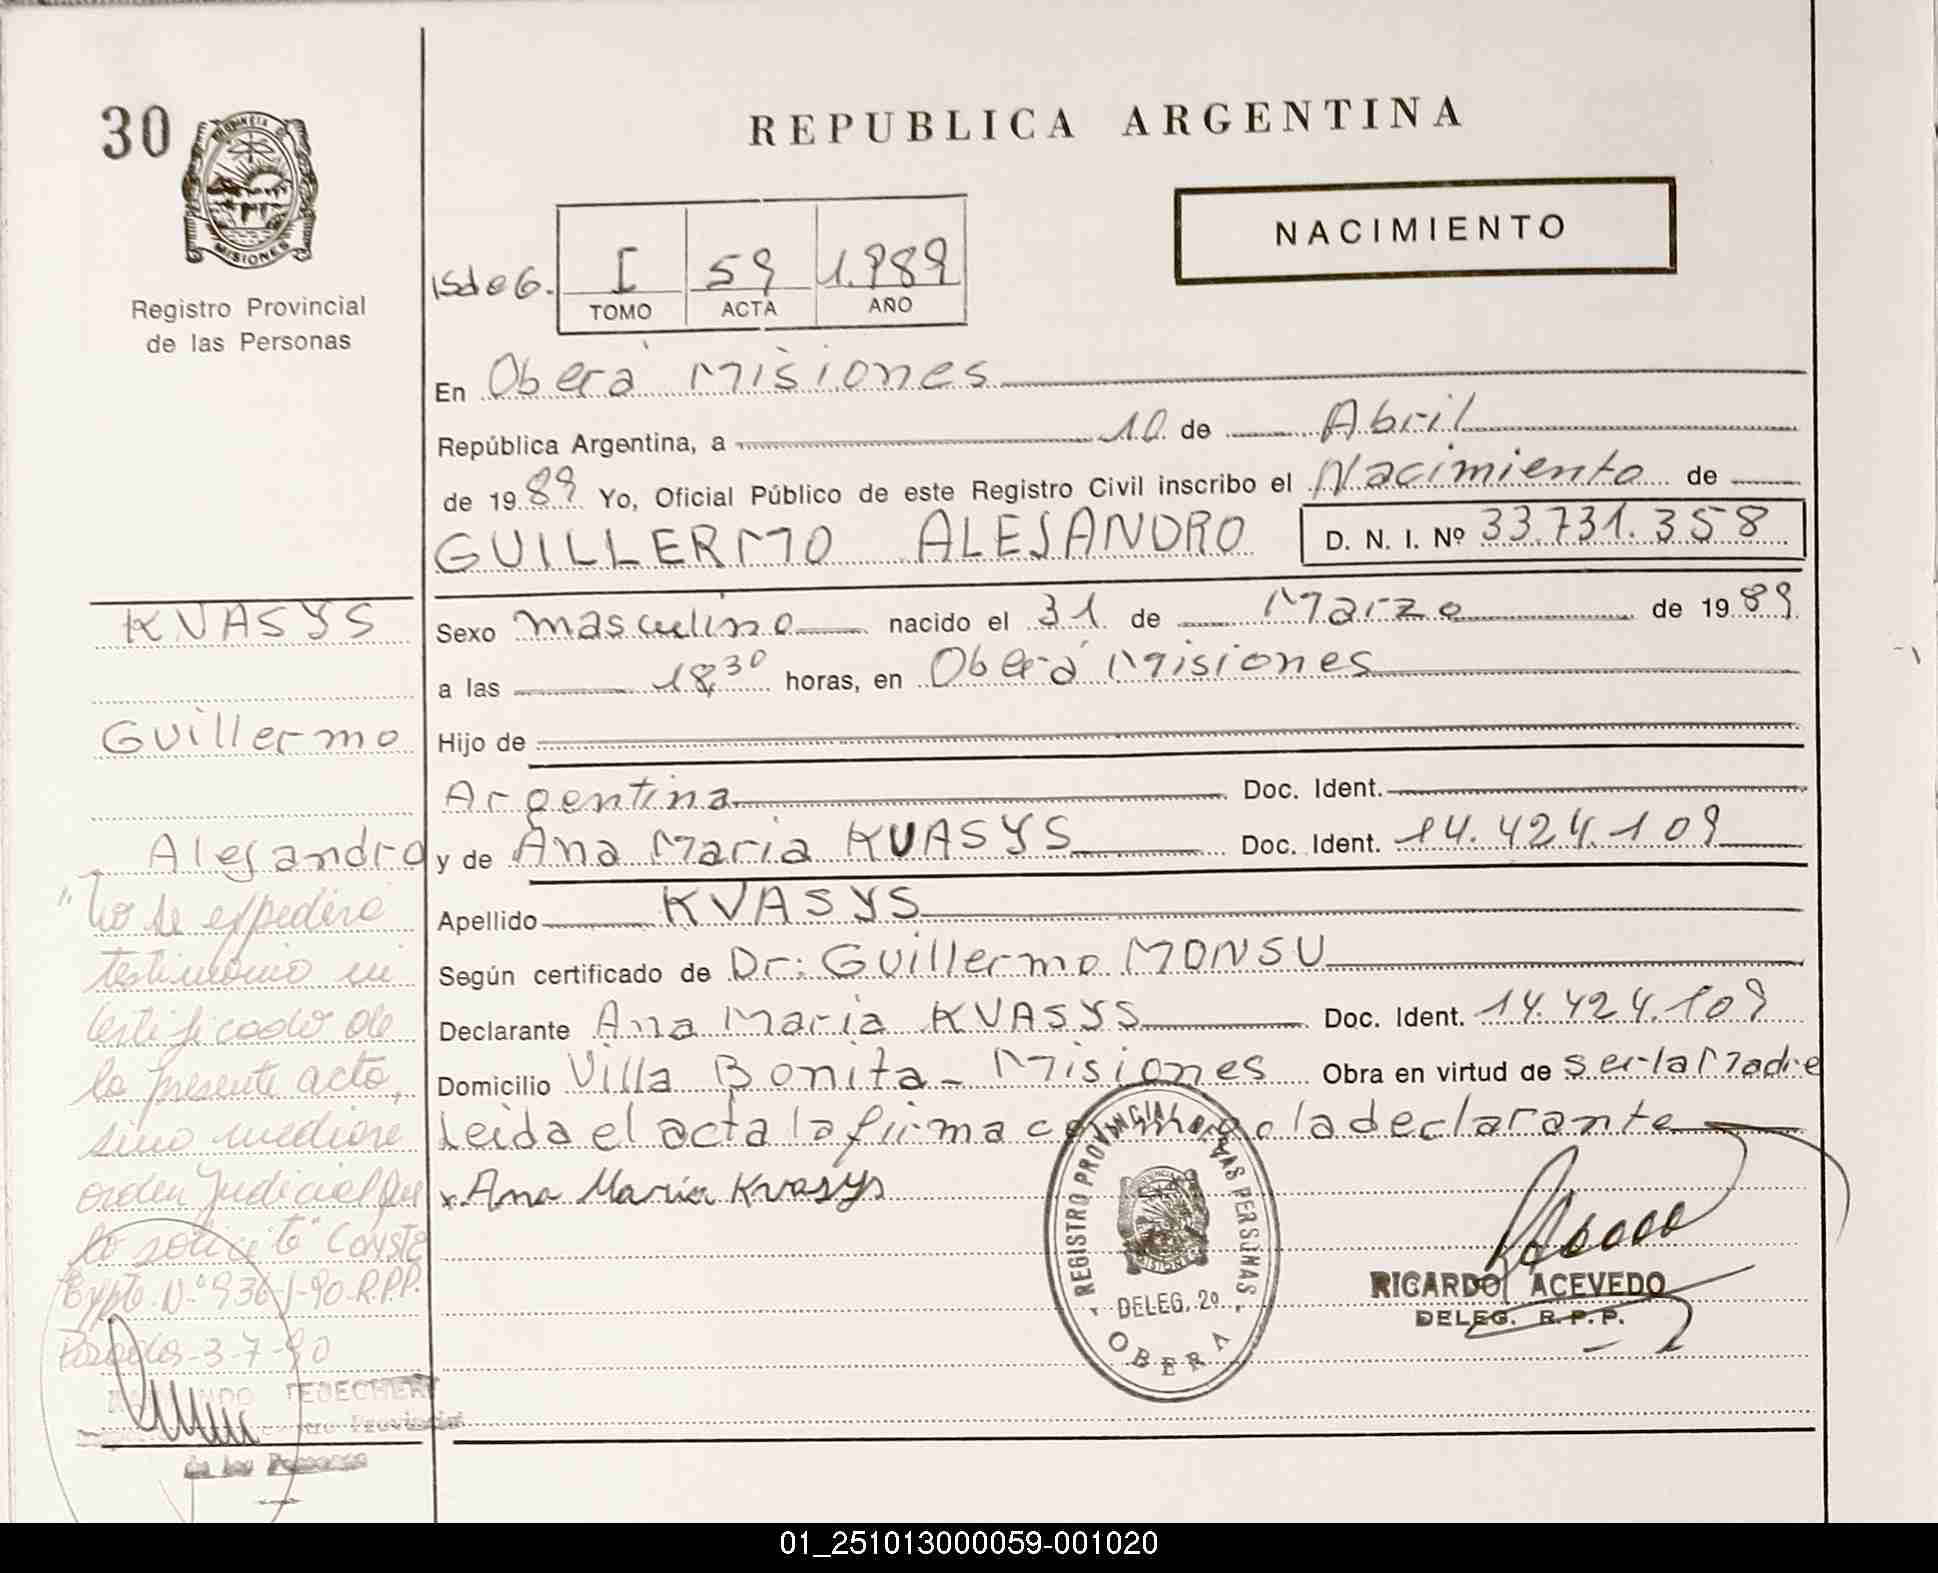 30
PROVINCIA DE
MISIONES
Registro Provincial
de las Personas
REPUBLICA ARGENTINA
NACIMIENTO
I 59 1.989
TOMO ACTA AÑO
En Oberá Misiones
República Argentina, a 10 de Abril
de 1989 Yo, Oficial Público de este Registro Civil inscribo el Nacimiento de
GUILLERMO ALEJANDRO D. N. I. Nº 33.731.358
KVASYS
Sexo masculino nacido el 31 de Marzo de 1989
a las 18,30 horas, en Oberá Misiones
Guillermo
Hijo de
Argentina Doc. Ident.
Alejandro
y de Ana Maria KVASYS Doc. Ident. 14.424.109
Apellido KVASYS
Según certificado de Dr: Guillermo MONSU
Declarante Ana Maria KVASYS Doc. Ident. 14.424.109
Domicilio Villa Bonita - Misiones Obra en virtud de ser la Madre
Leida el acta la firma conmigo la declarante
x Ana Maria Kvasys
"No se expedirá
testimonio ni
certificado de
la presente acta,
sino mediare
orden Judicial que
lo solicite" Conste
Expte. Nº 936-J-90-R.P.P.
Posadas-3-7-90
TEDECHERI
Provincial
de las Personas
REGISTRO PROVINCIAL DE LAS PERSONAS
MISIONES
DELEG. 2º
OBERA
RICARDO ACEVEDO
DELEG. R.P.P.
01_251013000059-001020